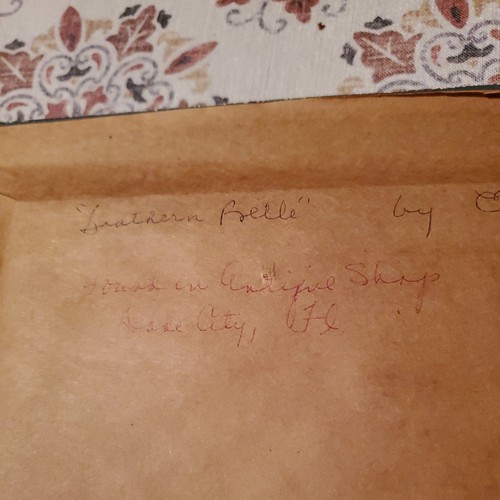 "Southern Belle" by
Found in Antique Shop
Dade City, Fl